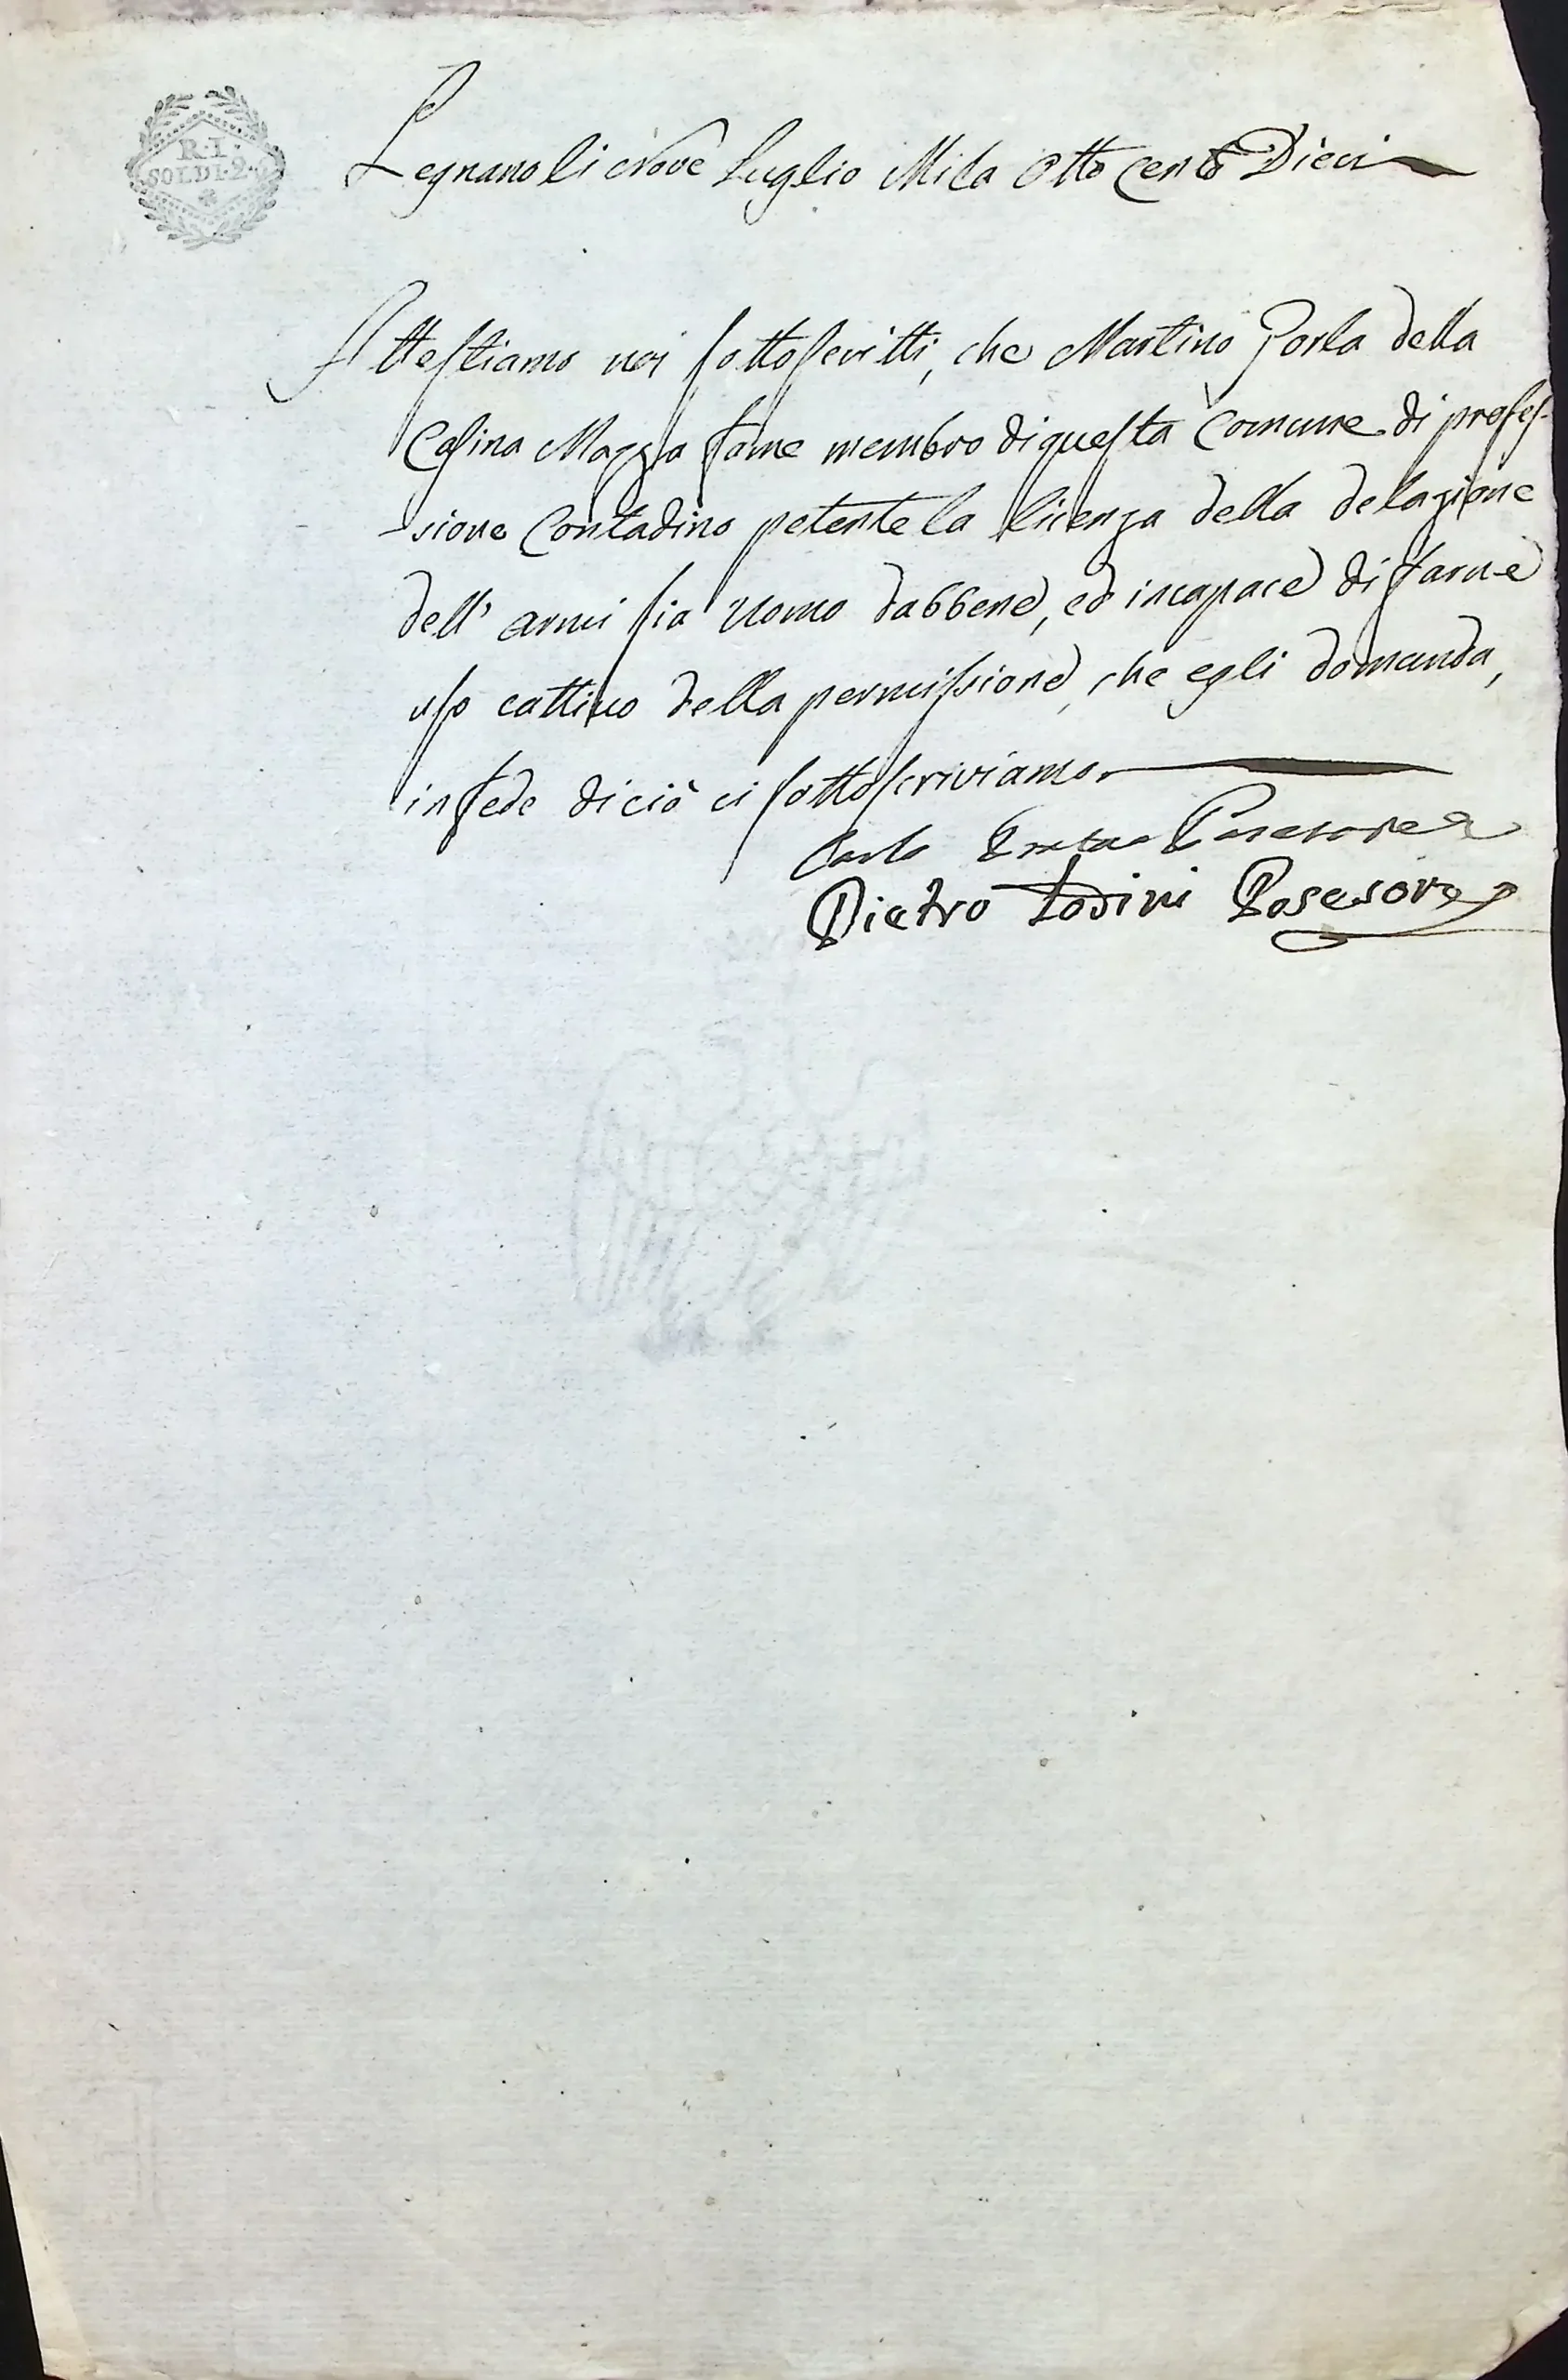 R. I.
SOLDI. 2.
Legnano li Nove Luglio Mila Otto Cento Dieci
Attestiamo noi sottoscritti, che Martino Porla della
Casina Mazzafame membro di questa Comune di profes-
-sione Contadino petente la licenza della delazione
dell' armi sia Uomo dabbene, ed incapace di farne
uso cattivo della permissione, che egli domanda,
in fede di ciò ci sottoscriviamo.
Carlo
Pietro Lodini Posesore